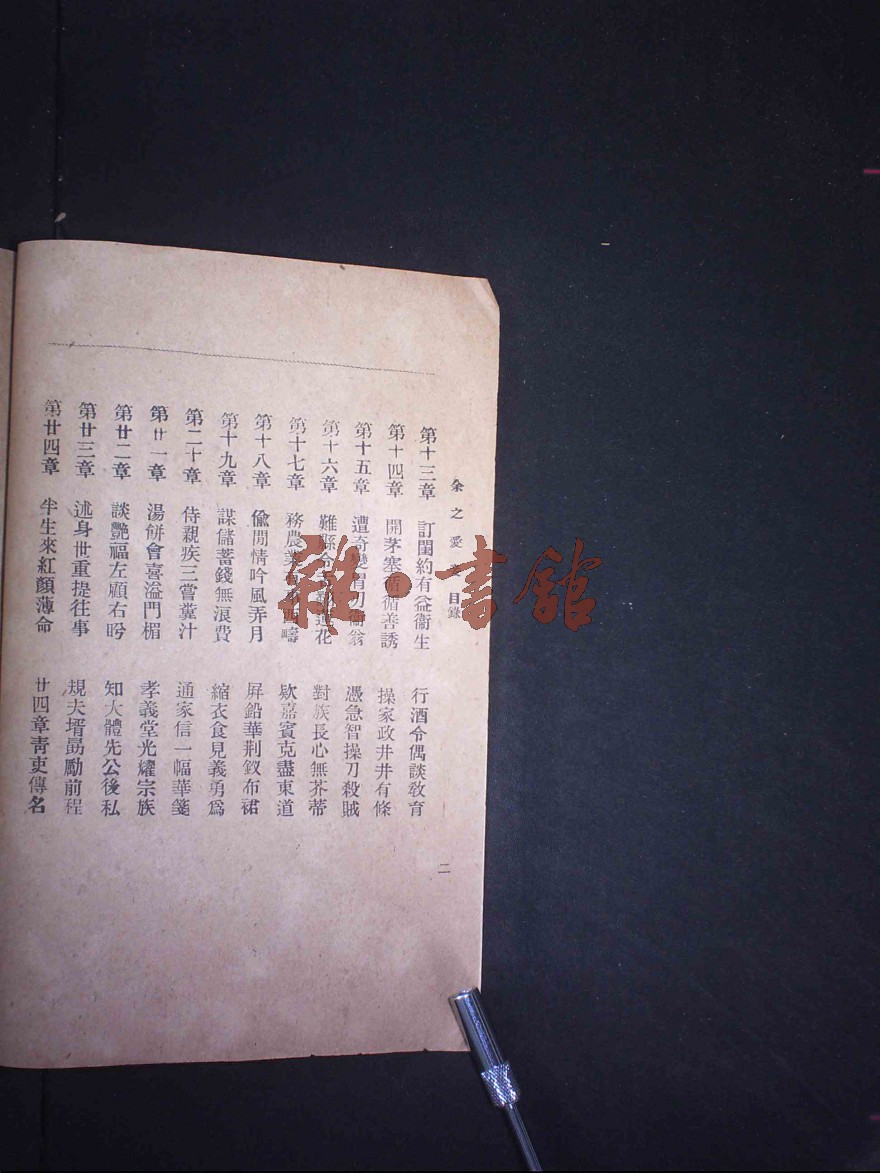 余之愛妻 目錄
第十三章 訂閨約有益衞生 行酒令偶談敎育
第十四章 開茅塞循循善誘 操家政井井有條
第十五章 遭奇變冒刃衞翁 憑急智操刀殺賊
第十六章 難縣令花 對族長心無芥蒂
第十七章 務農業西疇 欵嘉賓克盡東道
第十八章 偸閒情吟風弄月 屛鉛華荆釵布裙
第十九章 謀儲蓄錢無浪費 縮衣食見義勇爲
第二十章 侍親疾三嘗糞汁 通家信一幅華箋
第廿一章 湯餠會喜溢門楣 孝義堂光耀宗族
第廿二章 談艷福左顧右盻 知大體先公後私
第廿三章 述身世重提往事 規夫壻勗勵前程
第廿四章 半生來紅顏薄命 廿四章靑史傳名
二
雜·書館